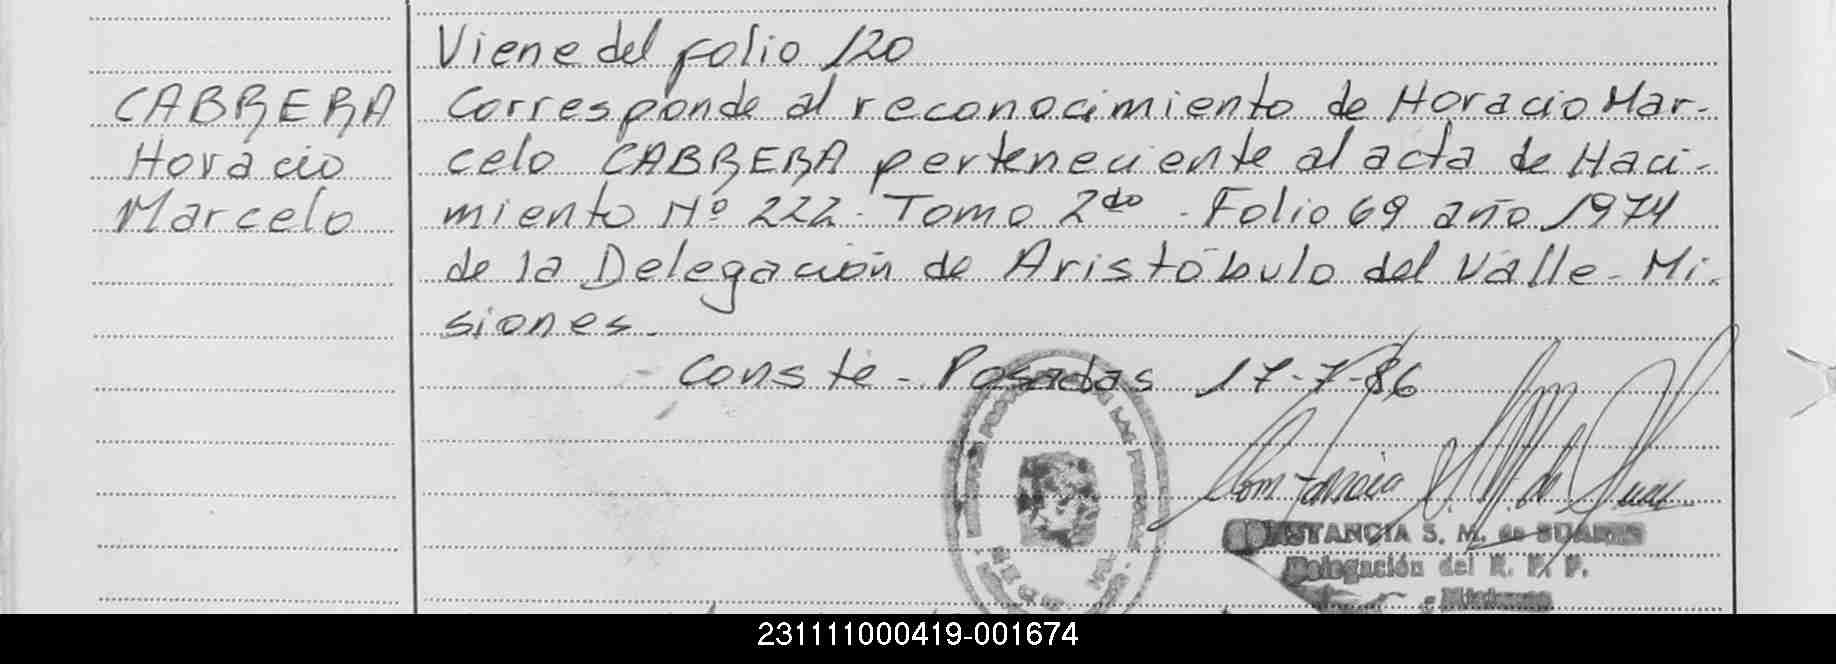 Viene del folio 120
CABRERA
Horacio
Marcelo
Corresponde al reconocimiento de Horacio Mar-
celo CABRERA perteneciente al acta de Naci-
miento Nº 222. Tomo 2do. Folio 69 año 1974
de la Delegación de Aristóbulo del Valle - Mi-
siones.
Conste - Posadas 17-7-86
CONSTANCIA S. M. de SUAREZ
Delegación del R. P. P.
Misiones
231111000419-001674